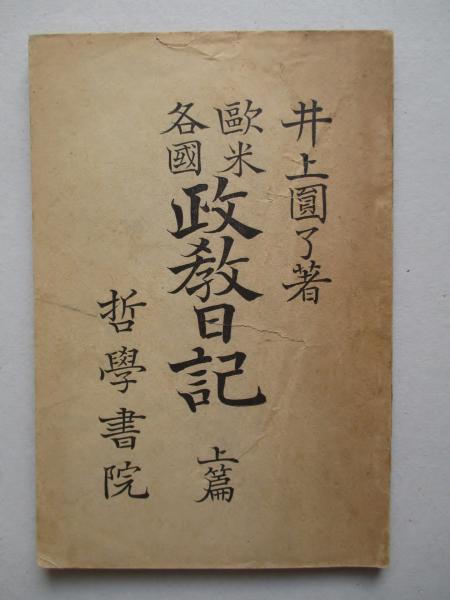 井上圓了著
歐米
各國
政敎日記
上篇
哲學書院